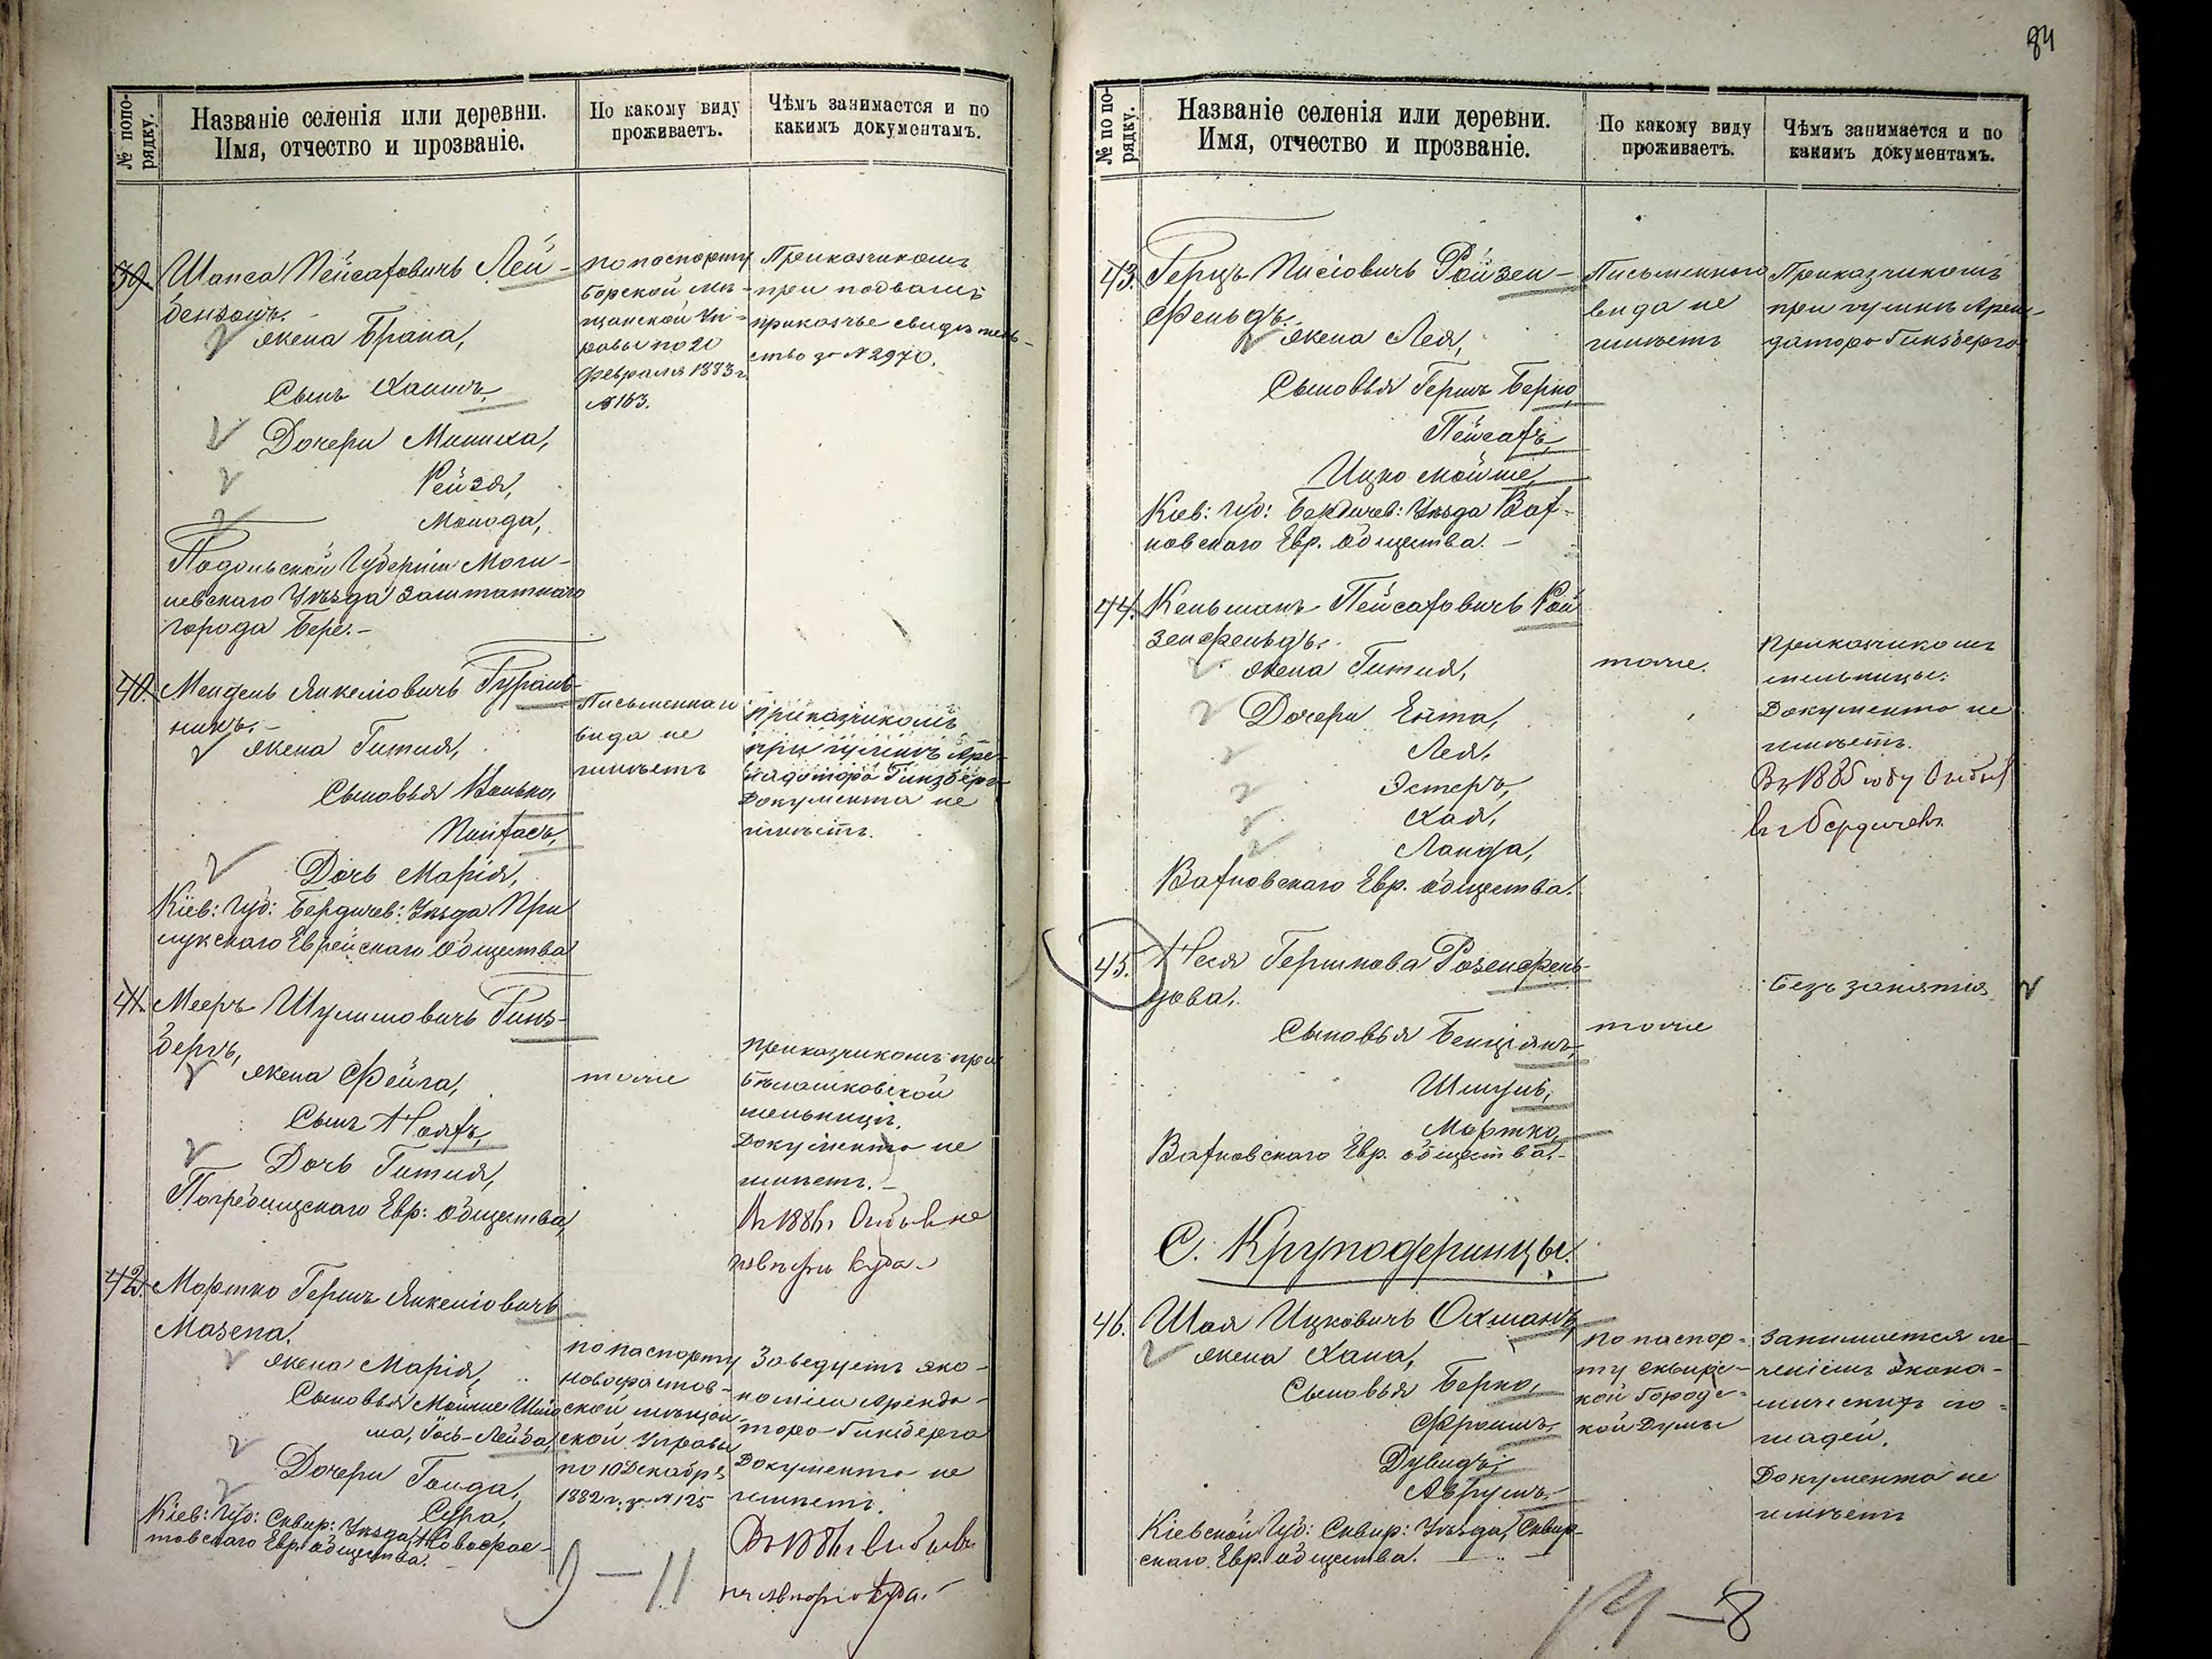 № попо-
рядку.
Названіе селенія или деревни.
Имя, отчество и прозваніе.
По какому виду
проживаетъ.
Чѣмъ занимается и по
какимъ документамъ.
39. Шапса Пейсаховичъ Лей-
бензонъ.
жена Брана,
Сынъ Хаимъ,
Дочери Миника,
Рейзя,
Подольской Губерніи Моги-
левскаго Уѣзда Заштатнаго
города Бере.-
по паспорту
Барской мѣ-
щанской Уп-
равы по 20
Февраля 1883 г.
№ 163.
Приказчикомъ
при подвалѣ
приказчье свидѣтель-
ство за № 2970.
40. Мендель Янкеліовичъ Гураль-
никъ.-
жена Гитля,
Сыновья Волько,
Пинхасъ,
Дочь Марія,
Кіев: Губ: Бердичев: Уѣзда При
лукскаго Еврейскаго Общества
Письменнаго
вида не
имѣетъ
Приказчикомъ
при гумнѣ Аре-
ндатора Гинзберга
Документа не
имѣетъ.
41. Мееръ Шулимовичъ Гинз-
бергъ,
жена Фейга,
Сынъ Ноахъ,
Дочь Гитля,
Погребищскаго Евр: Общества,
тоже
Приказчикомъ при
Бѣлашковской
мельницѣ.
Документа не
имѣетъ.-
В 1886 г. Отбыл не
извѣстно куда.
42. Мортко Гершъ Янкеліовичъ
Мазепа.
жена Марія,
Сыновья Мойше Шлио
ма, Іось-Лейба,
Дочери Голда,
Сура,
Кіев: Губ: Сквир: Уѣзда, Новофас-
товскаго Евр. общества.
по паспорту
Новофастов-
ской мѣщан-
ской Управы
по 10 Декабря
1882 г. за № 125
Заведуетъ эко-
номіею Аренда-
тора Гинзберга
Документа не
имѣетъ.
В 1886 г. выбылъ
неизвѣстно куда.
9 - 11
84
№ по по-
рядку.
Названіе селенія или деревни.
Имя, отчество и прозваніе.
По какому виду
проживаетъ.
Чѣмъ занимается и по
какимъ документамъ.
43. Герцъ Писіовичъ Ройзен-
фельдъ.
жена Лея,
Сыновья Гершъ Берко,
Пейсахъ,
Ицко Мойше,
Кіев: Губ: Бердичев: Уѣзда Вах-
новскаго Евр. Общества.-
Письменнаго
вида не
имѣетъ
Приказчикомъ
при гумнѣ Арен-
датора Гинзберга
44. Кельманъ Пейсаховичъ Рой
зенфельдъ.
жена Гитля,
Дочери Ента,
Лея,
Эстеръ,
Хая,
Ланда,
Вахновскаго Евр. Общества.
тоже.
Приказчикомъ
мельницы.
Документа не
имѣетъ.
В 1885 году Отбыл
в г Бердичевъ
45. Неся Гершкова Розенфель-
дова.
Сыновья Бенціянъ,
Шмуль,
Мортко,
Вахновскаго Евр. общества.-
тоже
Безъ занятія
С. Круподеринцы.
46. Шая Ицковичъ Охманъ,
жена Хана,
Сыновья Берко,
Фроимъ,
Дувидъ,
Аврумъ.
Кіевской Губ: Сквир: Уѣзда, Сквир-
скаго Евр. общества.
По паспор-
ту Сквирс-
кой Городс-
кой Думы
Занимается ле-
ченіемъ эконо-
мическихъ ло-
шадей.
Документа не
имѣетъ
14 - 8